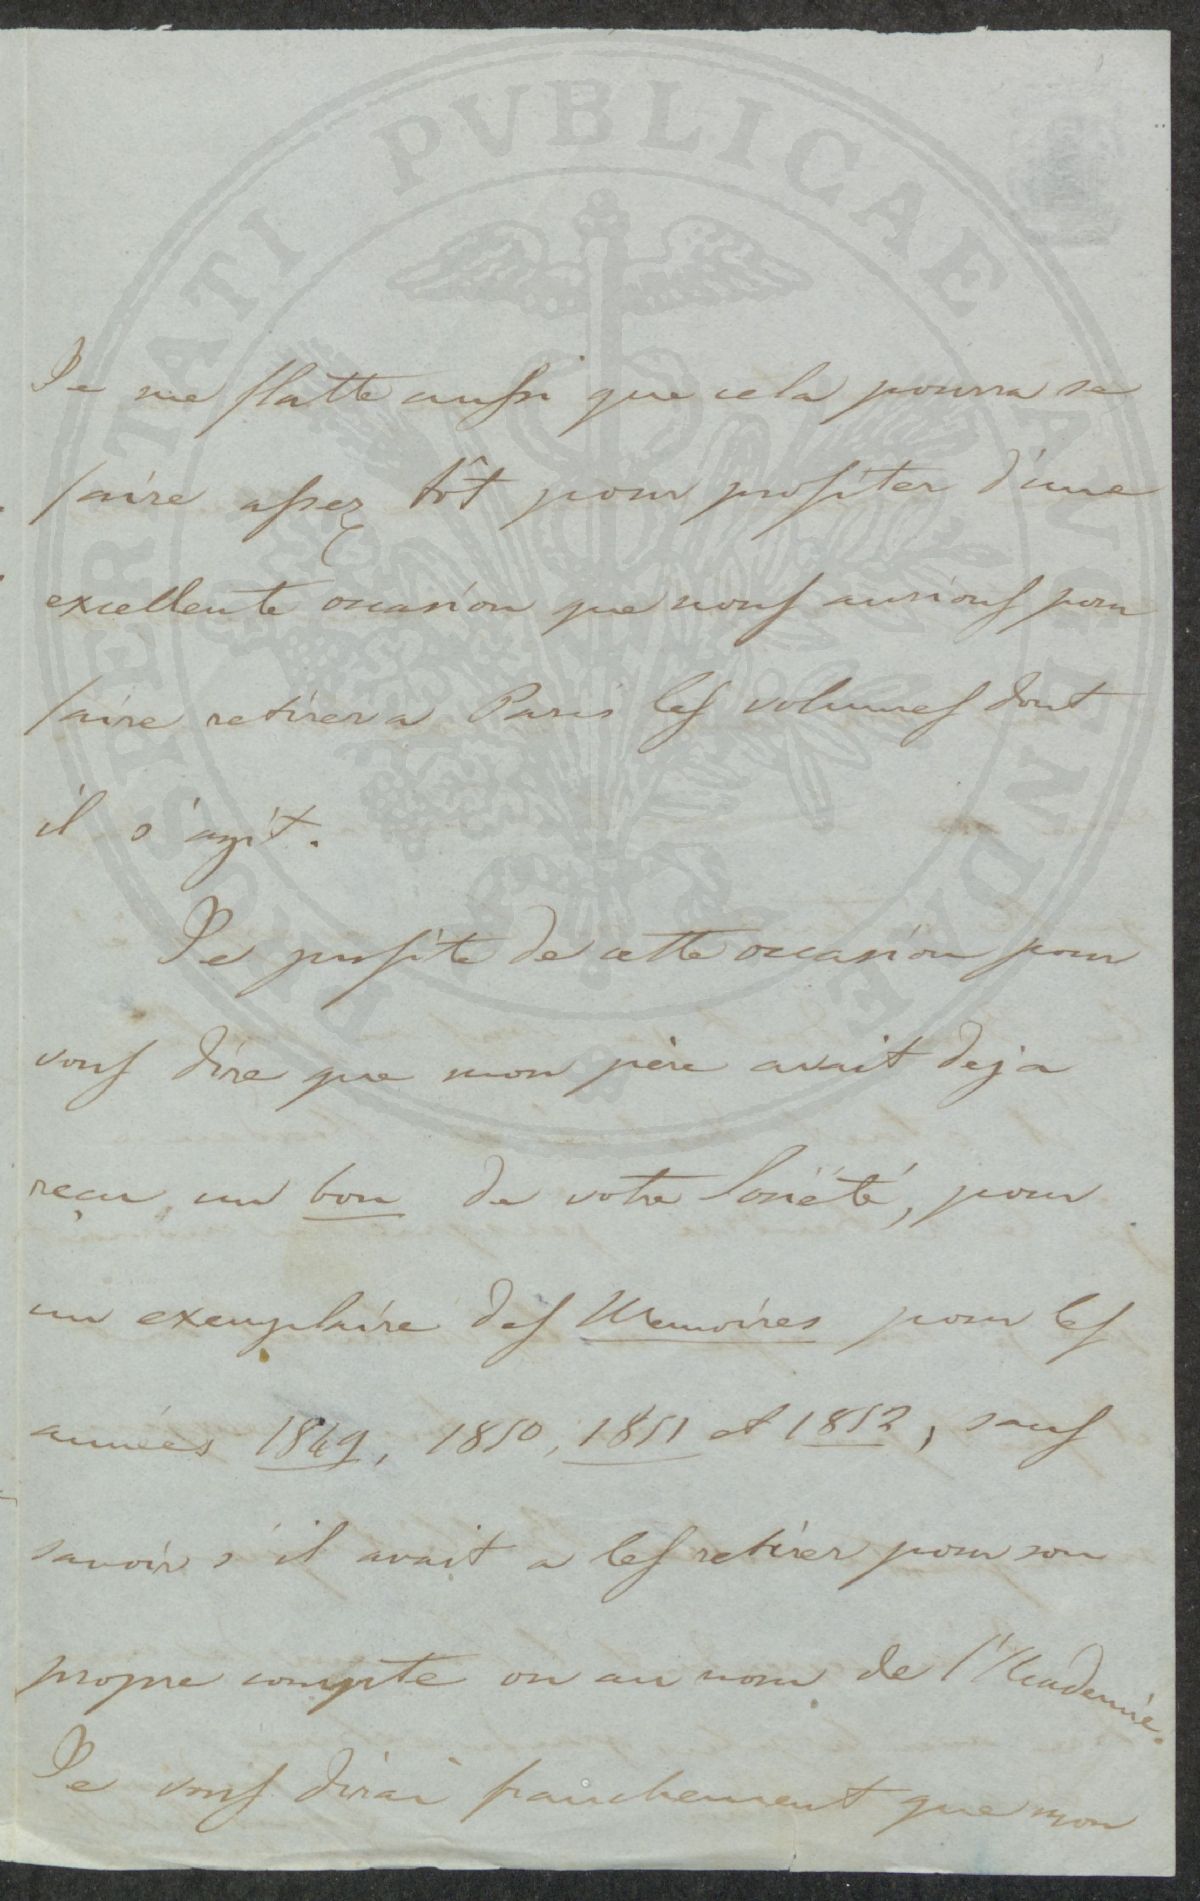 PROSPERITATI PUBLICAE AVGENDAE
Je me flatte aussi que cela pourra se
faire assez tôt pour profiter d'une
excellente occasion que nous aurions pour
faire retirer a Paris les volumes dont
il s'agit.
Je profite de cette occasion pour
vous dire que mon père avait deja
reçu un bon de votre Société, pour
un exemplaire des Memoires pour les
années 1849, 1850, 1851 et 1852, sauf
savoir s'il avait a les retirer pour son
propre compte ou au nom de l'Academie.
Je vous dirai franchement que mon